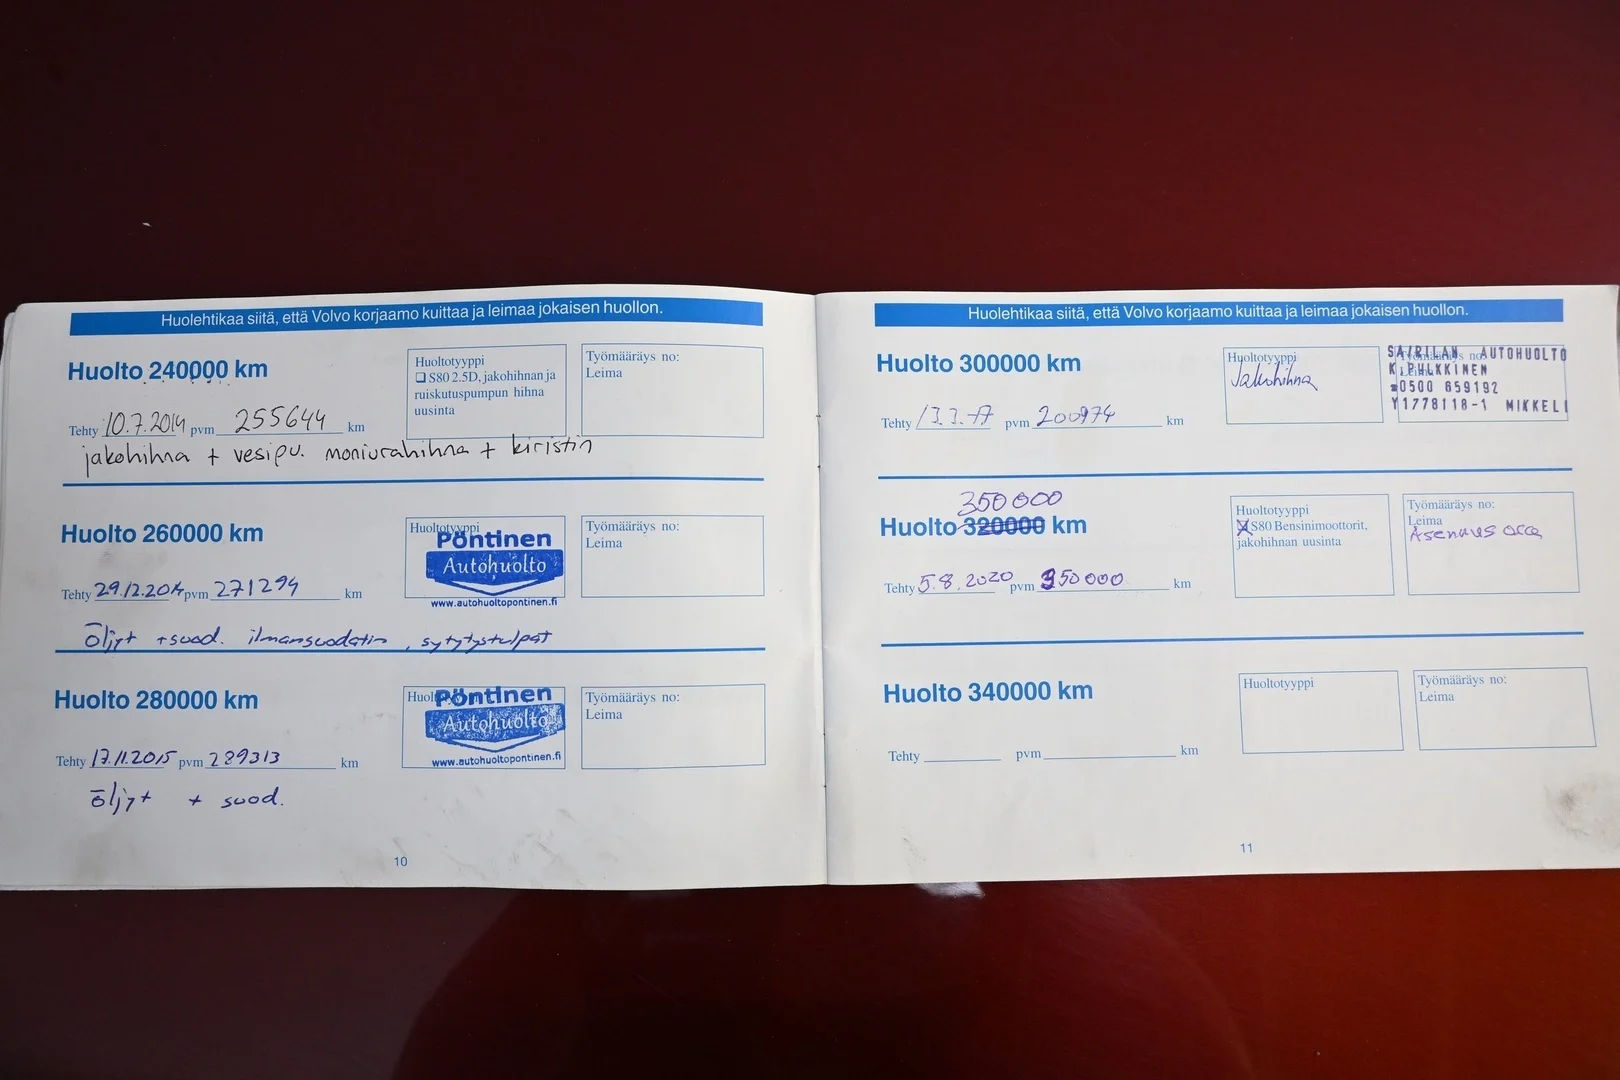 Huolehtikaa siitä, että Volvo korjaamo kuittaa ja leimaa jokaisen huollon.
Huolto 240000 km
Huoltotyyppi
S80 2.5D, jakohihnan ja
ruiskutuspumpun hihna
uusinta
Työmääräys no:
Leima
Tehty 10.7.2014 pvm 255644 km
jakohihna + vesipu. moniurahihna + kiristin
Huolto 260000 km
Huoltotyyppi
Pöntinen
Autohuolto
www.autohuoltopontinen.fi
Työmääräys no:
Leima
Tehty 29.12.2014 pvm 271294 km
öljyt + suod. ilmansuodatin, sytytystulpat
Huolto 280000 km
Pöntinen
Autohuolto
www.autohuoltopontinen.fi
Työmääräys no:
Leima
Tehty 17.11.2015 pvm 289313 km
öljyt + suod.
10
Huolehtikaa siitä, että Volvo korjaamo kuittaa ja leimaa jokaisen huollon.
Huolto 300000 km
Huoltotyyppi
Jakohihna
Työmääräys no:
AUTOHUOLTO
K. PULKKINEN
0500 659192
Y1778118-1 MIKKELI
Tehty 13.3.17 pvm 200974 km
350000
Huolto 320000 km
Huoltotyyppi
S80 Bensinimoottorit,
jakohihnan uusinta
Työmääräys no:
Leima
Asennus
Tehty 5.8.2020 pvm 350000 km
Huolto 340000 km
Huoltotyyppi
Työmääräys no:
Leima
Tehty pvm km
11